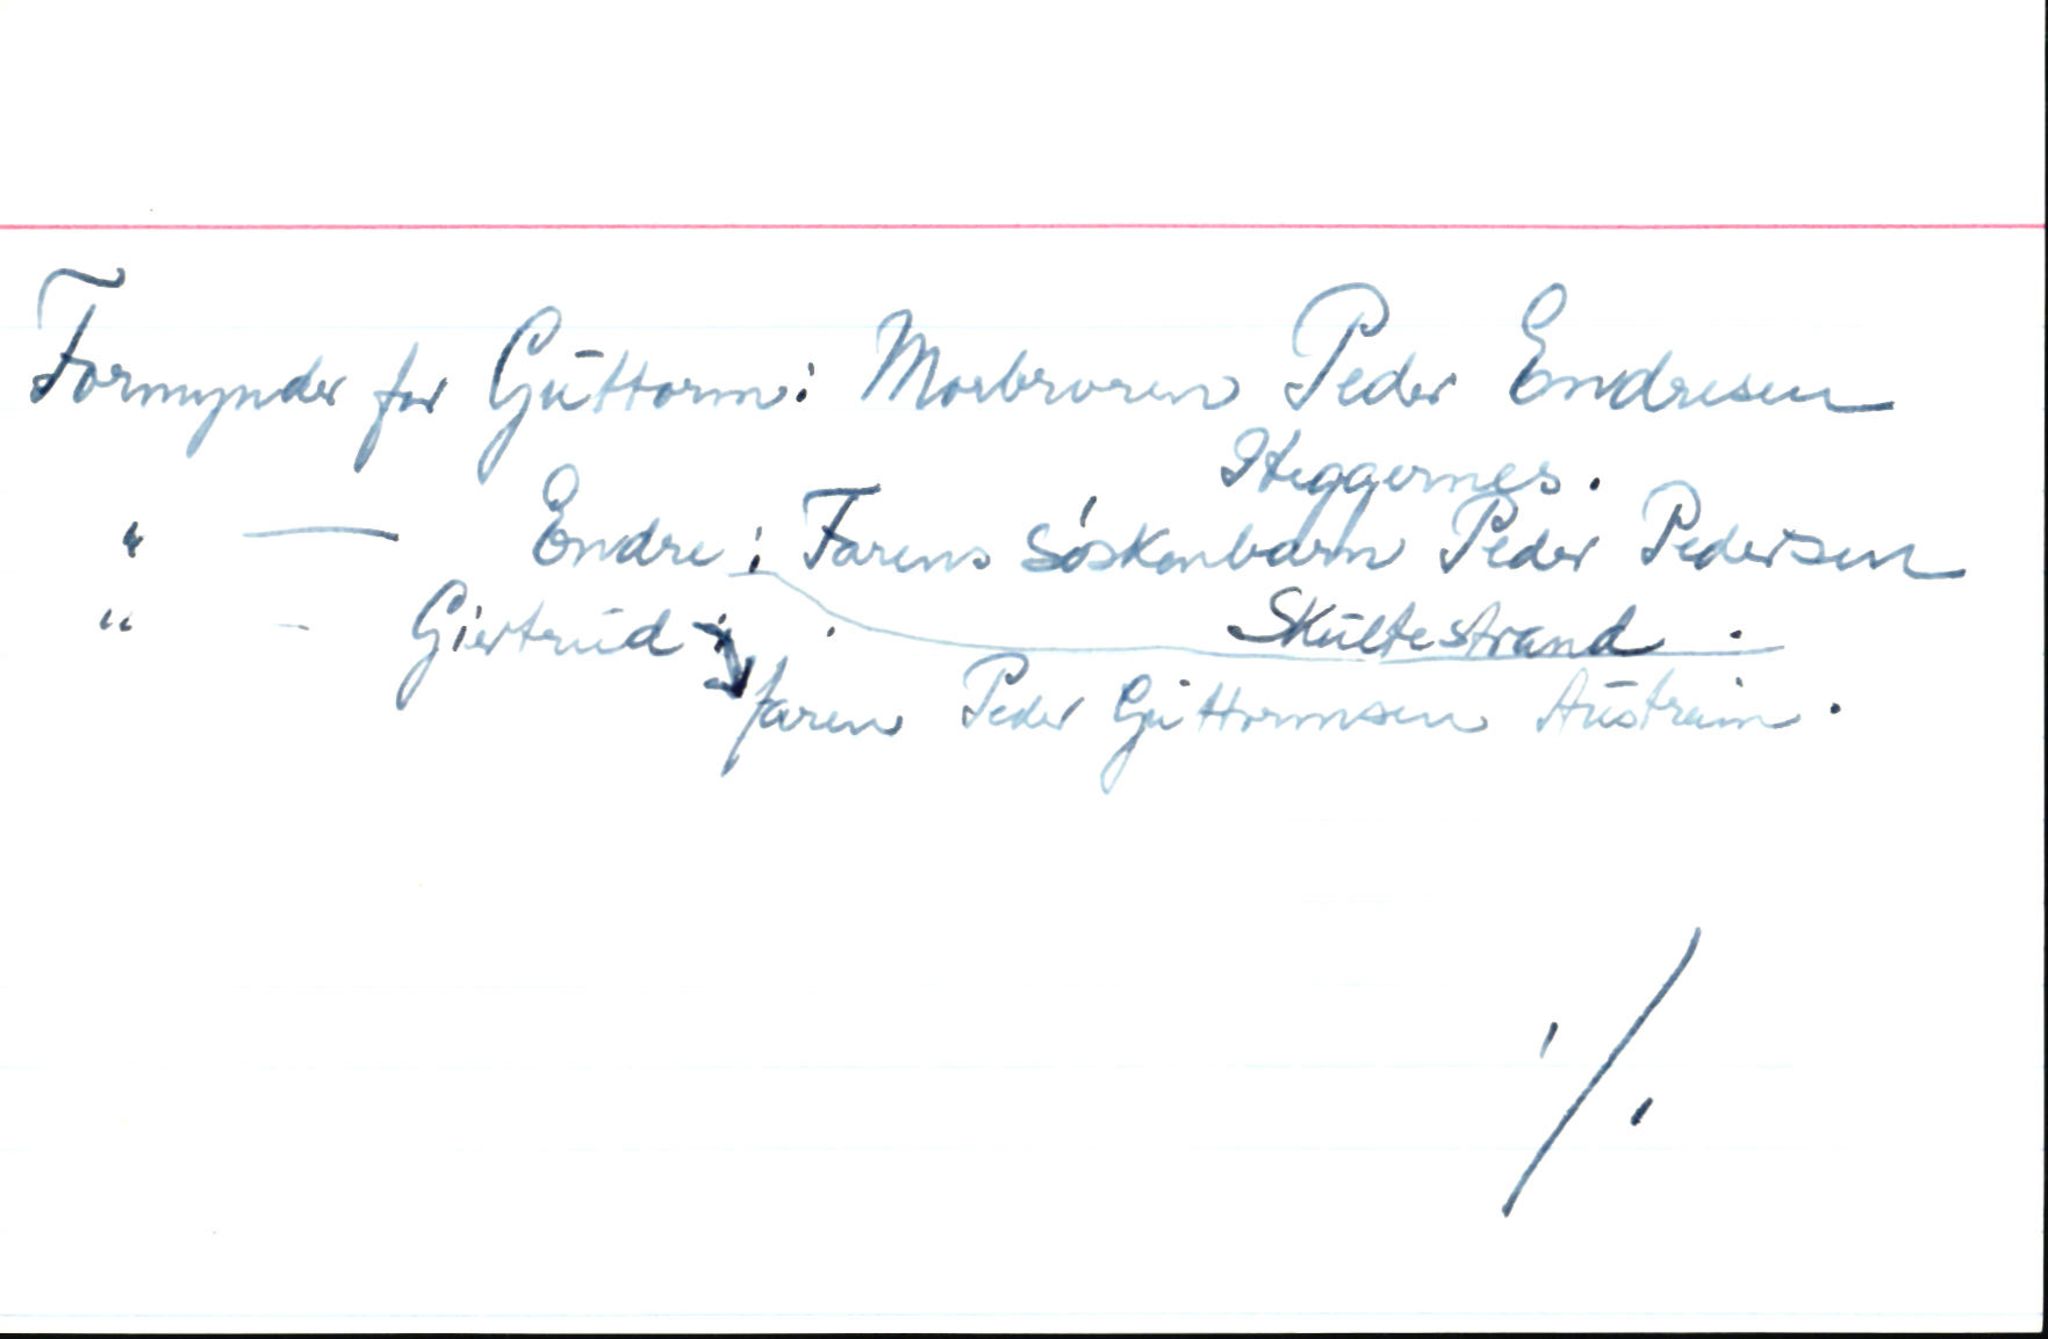 Formynder for Guttorm: Morbroren Peder Endresen
Heggernes.
" — Endre: Farens søskenbarn Peder Pedersen
Skultestrand.
" - Giertrud:
faren Peder Guttormsen Austreim.